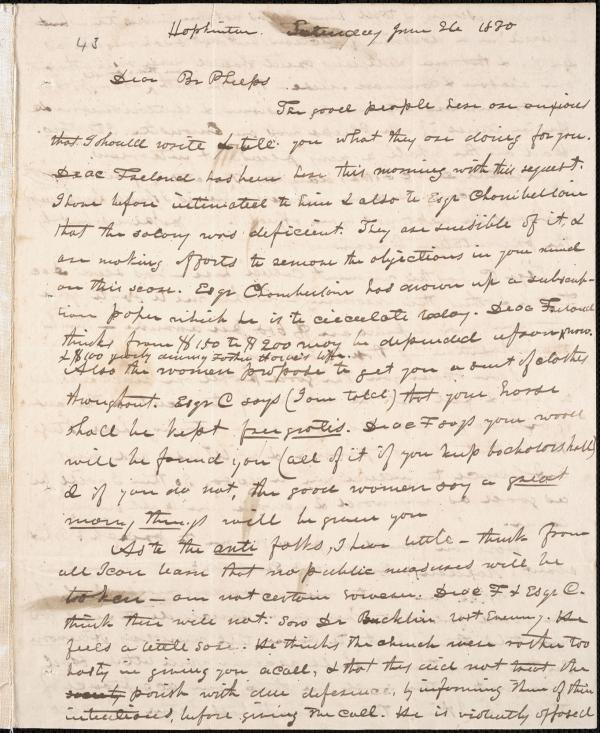 43
Hopkinton. Saturday June 26 1830
Dear Br Phelps
The good people here are anxious
that I should write & tell you what they are doing for you.
Deac Freland has been here this morning with this request.
I have before intimated to him & also to Esqr Chamberlain
that the salary was deficient. They are sensible of it, &
are making efforts to remove the objections in your mind
on this score. Esqr Chamberlain has drawn up a subscrip-
tion paper which he is to circulate today. Deac Freland
thinks from $150 to $200 may be depended upon now.
& $100 yearly during Father Howe's life.
Also the women propose to get you a suit of clothes
throughout. Esqr C says (I am told) that your horse
shall be kept free gratis. Deac F says your wood
will be found you (all of it if you keep bachelors hall)
& if you do not, the good women say a great
many things will be given you
As to the anti folks, I hear little - think from
all I can learn that no public measures will be
taken - am not certain however. Deac F & Esqr C.
think there will not. Saw Dr Bucklin last Evening. He
feels a little sore. He thinks the church were rather too
hasty in giving you a call, & that they did not treat the
parish with due deference, by informing them of their
intentions, before giving the call. He is violently opposed